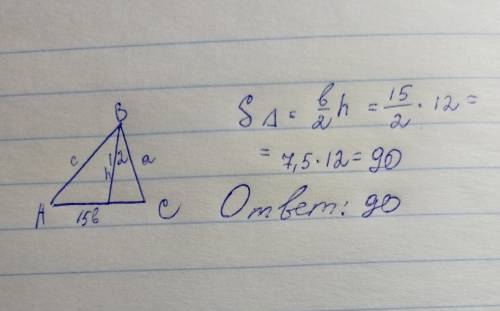 B
c 12 a
h
A 15b C
S△ = b/2 h = 15/2 · 12 =
= 7,5 · 12 = 90
Ответ: 90